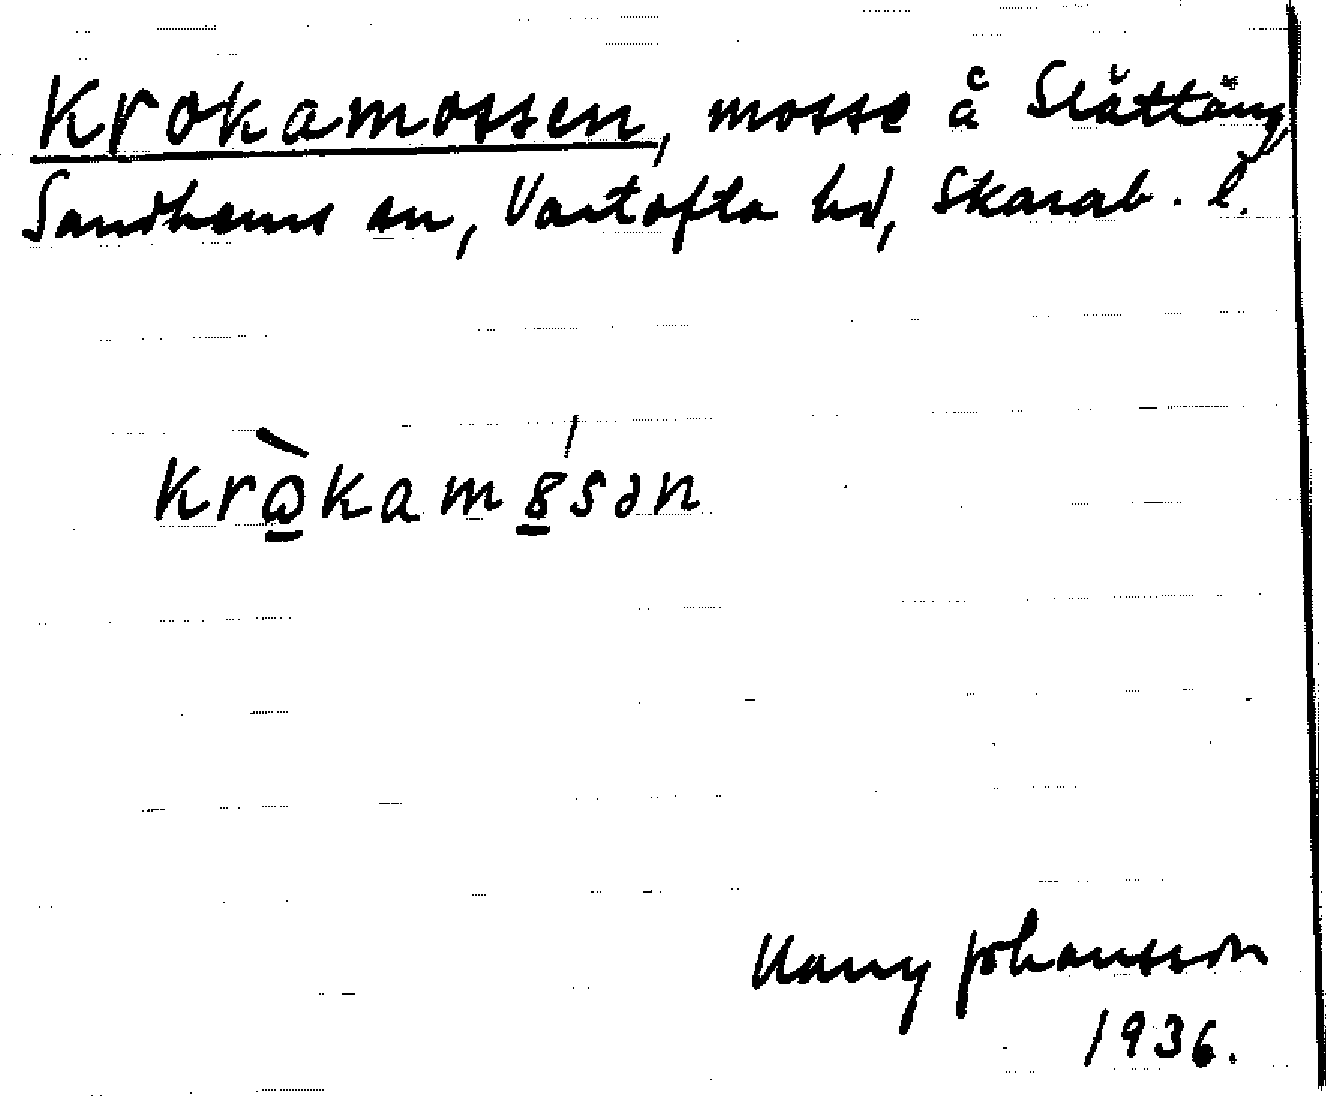 Krokamossen, mosse å Slättäng,
Sandhems sn, Vartofta hd, Skarab. l.
krὼkamȣ́sən
Harry Johansson
1936.